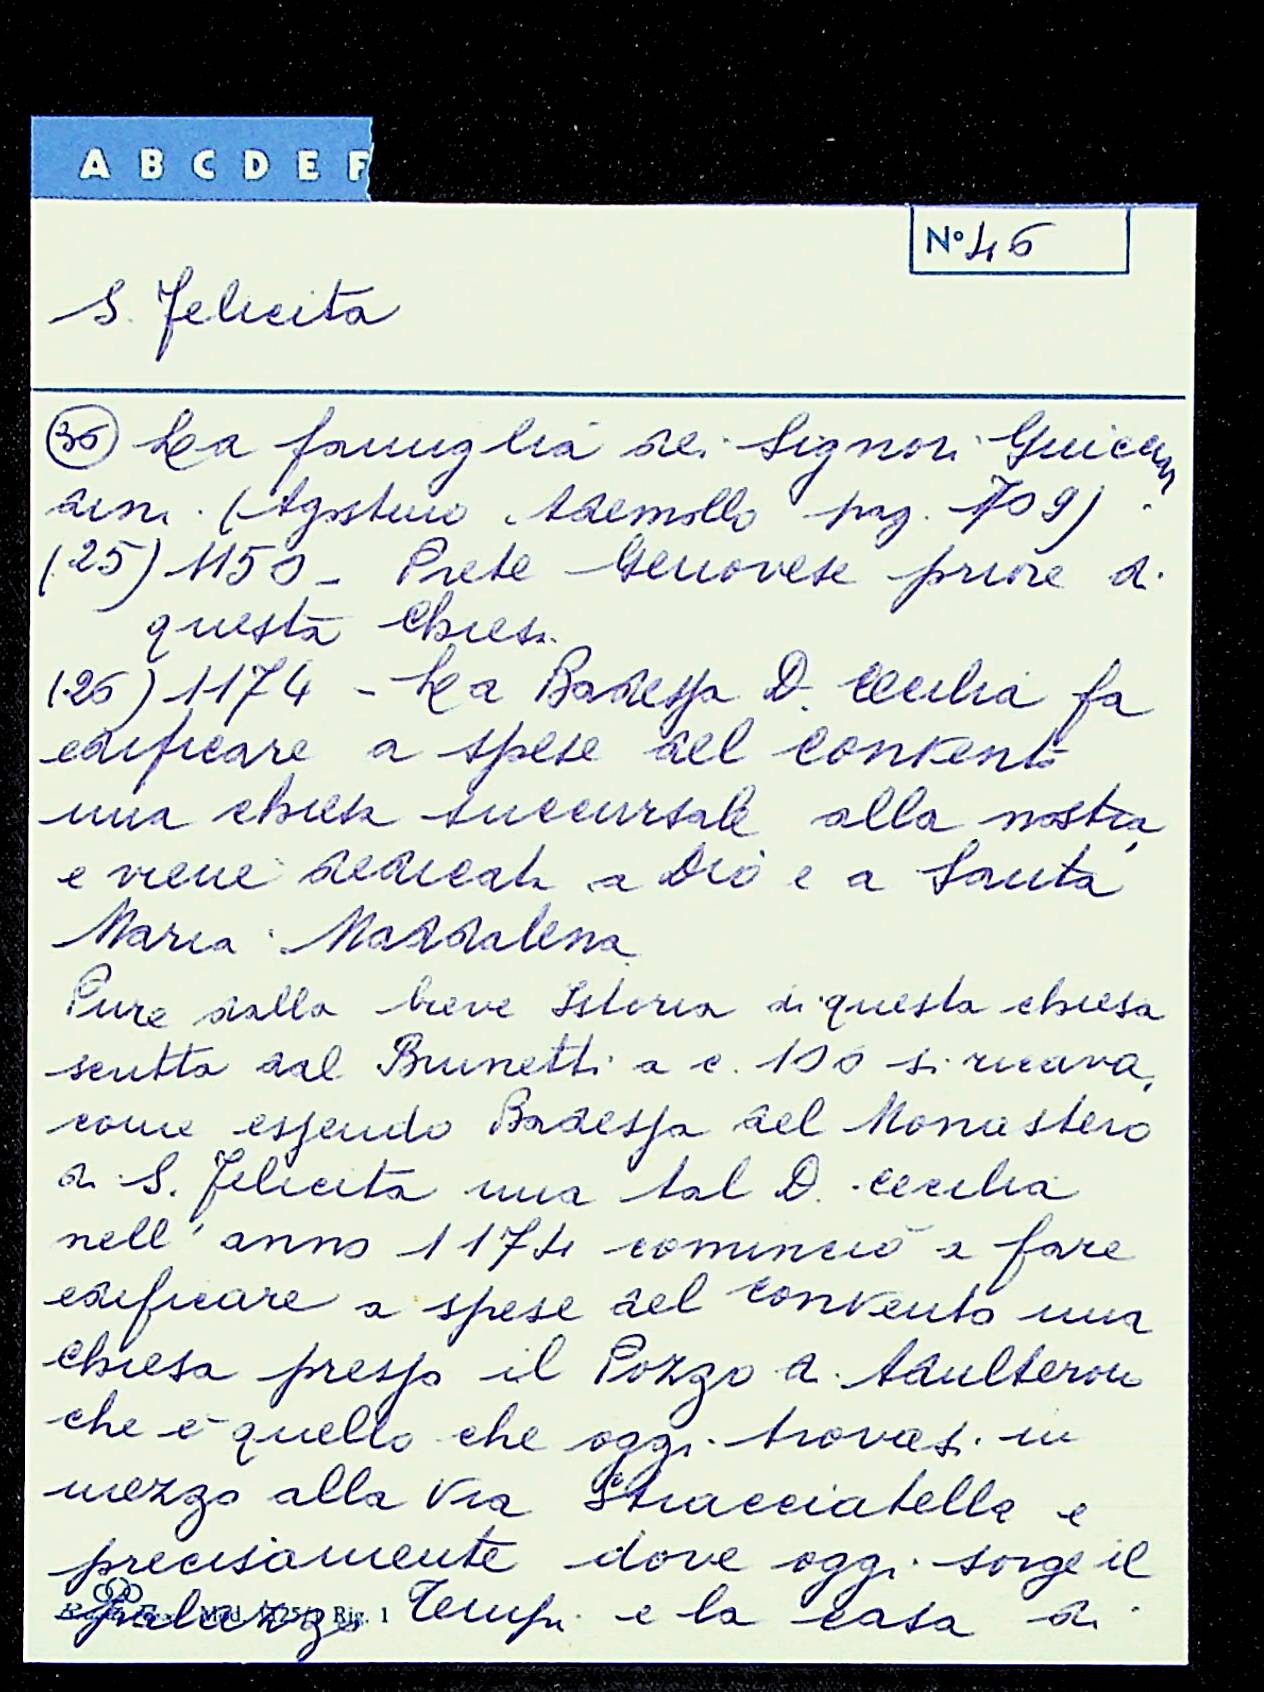 A B C D E F
Nº 46
S. Felicita
(36) La famiglia dei Signori Guicciar
dini. (Agostino Ademollo pag. 709)
(25) 1150 - Prete Genovese priore di
questa chiesa.
(26) 1174 - La Badessa D. Cecilia fa
edificare a spese del convento
una chiesa succursale alla nostra,
e viene dedicata a Dio e a Santa
Maria Maddalena
Pure dalla breve Istoria di questa chiesa
scritta dal Brunetti a c. 100 si ricava,
come essendo Badessa del Monastero
di S. Felicita una tal D. Cecilia
nell'anno 1174 cominciò a fare
edificare a spese del convento una
chiesa presso il Pozzo a Adulteroni
che è quello che oggi trovasi in
mezzo alla Via Stracciatella e
precisamente dove oggi sorge il
palazzo Tempi e la casa di
Mod. Rig. 1